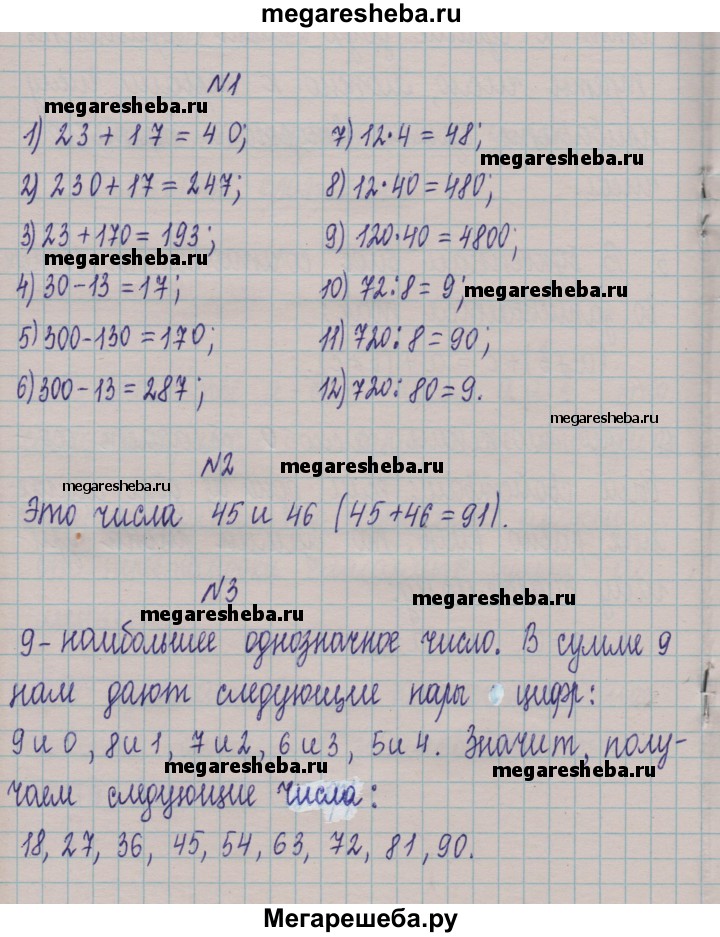 megaresheba.ru
N1
megaresheba.ru
1) 23 + 17 = 40;
7) 12·4 = 48;
megaresheba.ru
2) 230+17 = 247;
8) 12·40 = 480;
3) 23+170 = 193;
9) 120·40 = 4800;
megaresheba.ru
4) 30-13 = 17;
10) 72:8 = 9;
megaresheba.ru
5) 300-130 = 170;
11) 720:8 = 90;
6) 300-13 = 287;
12) 720:80 = 9.
megaresheba.ru
N2
megaresheba.ru
megaresheba.ru
Это числа 45 и 46 (45+46 = 91).
N3
megaresheba.ru
megaresheba.ru
9 - наибольшее однозначное число. В сумме 9
нам дают следующие пары цифр:
9 и 0, 8 и 1, 7 и 2, 6 и 3, 5 и 4. Значит, полу-
megaresheba.ru
megaresheba.ru
чаем следующие числа:
18, 27, 36, 45, 54, 63, 72, 81, 90.
Мегарешеба.ру